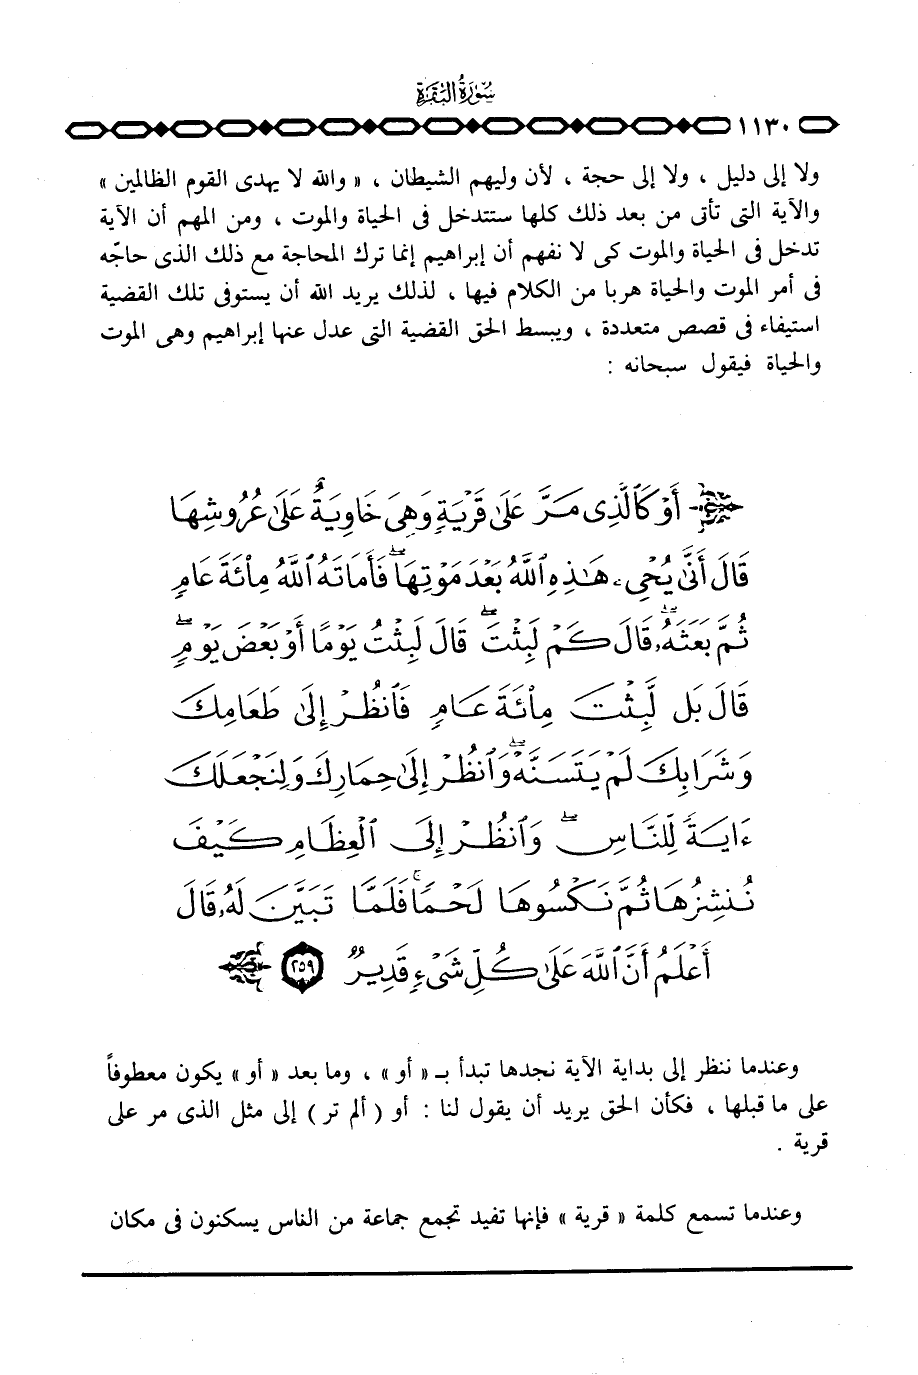 سُورَةُ البَقَرَةِ
١١٣٠
ولا إلى دليل ، ولا إلى حجة ، لأن وليهم الشيطان ، « والله لا يهدى القوم الظالمين »
والآية التى تأتى من بعد ذلك كلها ستتدخل فى الحياة والموت ، ومن المهم أن الآية
تدخل فى الحياة والموت كى لا نفهم أن إبراهيم إنما ترك المحاجة مع ذلك الذى حاجّه
فى أمر الموت والحياة هربا من الكلام فيها ، لذلك يريد الله أن يستوفى تلك القضية
استيفاء فى قصص متعددة ، ويبسط الحق القضية التى عدل عنها إبراهيم وهى الموت
والحياة فيقول سبحانه :
أَوْ كَٱلَّذِى مَرَّ عَلَىٰ قَرْيَةٍ وَهِىَ خَاوِيَةٌ عَلَىٰ عُرُوشِهَا
قَالَ أَنَّىٰ يُحْىِۦ هَـٰذِهِ ٱللَّهُ بَعْدَ مَوْتِهَا ۖ فَأَمَاتَهُ ٱللَّهُ مِا۟ئَةَ عَامٍ
ثُمَّ بَعَثَهُۥ ۖ قَالَ كَمْ لَبِثْتَ ۖ قَالَ لَبِثْتُ يَوْمًا أَوْ بَعْضَ يَوْمٍ ۖ
قَالَ بَل لَّبِثْتَ مِا۟ئَةَ عَامٍ فَٱنظُرْ إِلَىٰ طَعَامِكَ
وَشَرَابِكَ لَمْ يَتَسَنَّهْ ۖ وَٱنظُرْ إِلَىٰ حِمَارِكَ وَلِنَجْعَلَكَ
ءَايَةً لِّلنَّاسِ ۖ وَٱنظُرْ إِلَى ٱلْعِظَامِ كَيْفَ
نُنشِزُهَا ثُمَّ نَكْسُوهَا لَحْمًا ۚ فَلَمَّا تَبَيَّنَ لَهُۥ قَالَ
أَعْلَمُ أَنَّ ٱللَّهَ عَلَىٰ كُلِّ شَىْءٍ قَدِيرٌ ٢٥٩
وعندما ننظر إلى بداية الآية نجدها تبدأ بـ « أو » ، وما بعد « أو » يكون معطوفاً
على ما قبلها ، فكأن الحق يريد أن يقول لنا : أو ( ألم تر ) إلى مثل الذى مر على
قرية .
وعندما تسمع كلمة « قرية » فإنها تفيد تجمع جماعة من الناس يسكنون فى مكان